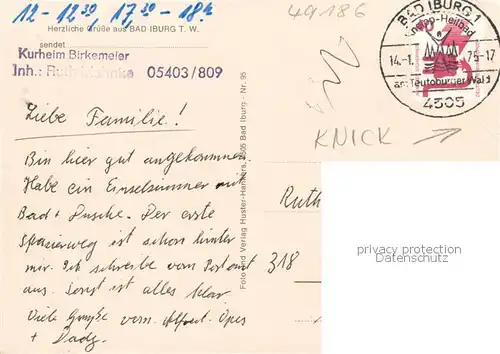 12 - 12³⁰, 17³⁰ - 18ʰ
Herzliche Grüße aus BAD IBURG T. W.
sendet
Kurheim Birkemeier
Inh.: Ruth 05403/809
49186
BAD IBURG 1
Kneipp-Heilbad
14.-1. 75-17
am Teutoburger Wald
4505
KNICK
Liebe Familie!
Bin hier gut angekommen.
Habe ein Einzelzimmer mit
Bad + Dusche. Der erste
Spazierweg ist schon hinter
mir. Ich schreibe vom Postamt
aus. Sonst ist alles klar
Viele Grüße vom Opes
+ Dady.
Foto und Verlag Huster-Hankers, 4505 Bad Iburg - Nr. 95
Ruth
318
privacy protection
watermark AKPool.de